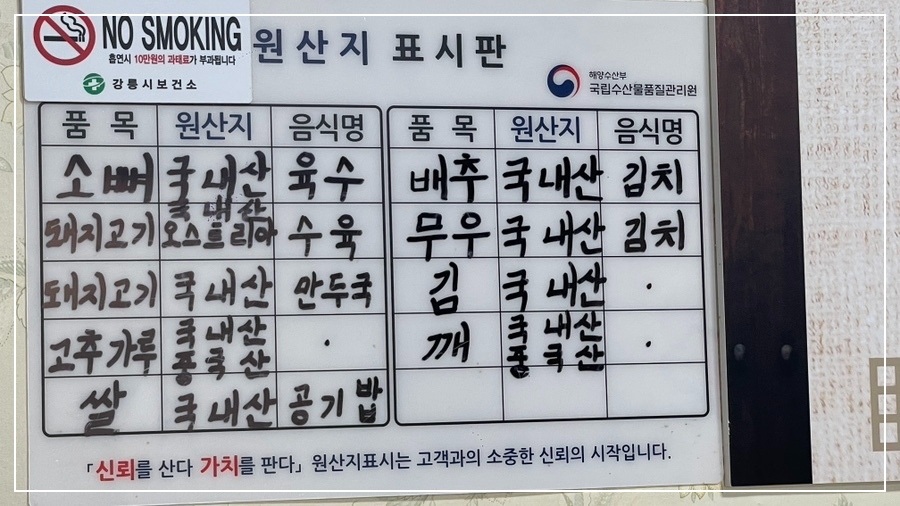 NO SMOKING
흡연시 10만원의 과태료가 부과됩니다
강릉시보건소
원산지 표시판
해양수산부
국립수산물품질관리원
품 목 원산지 음식명
소뼈 국내산 육수
돼지고기 국내산 오스트리아 수육
돼지고기 국내산 만두국
고추가루 국내산 중국산 ·
쌀 국내산 공기밥
품 목 원산지 음식명
배추 국내산 김치
무우 국내산 김치
김 국내산 ·
깨 국내산 중국산
「신뢰를 산다 가치를 판다」 원산지표시는 고객과의 소중한 신뢰의 시작입니다.